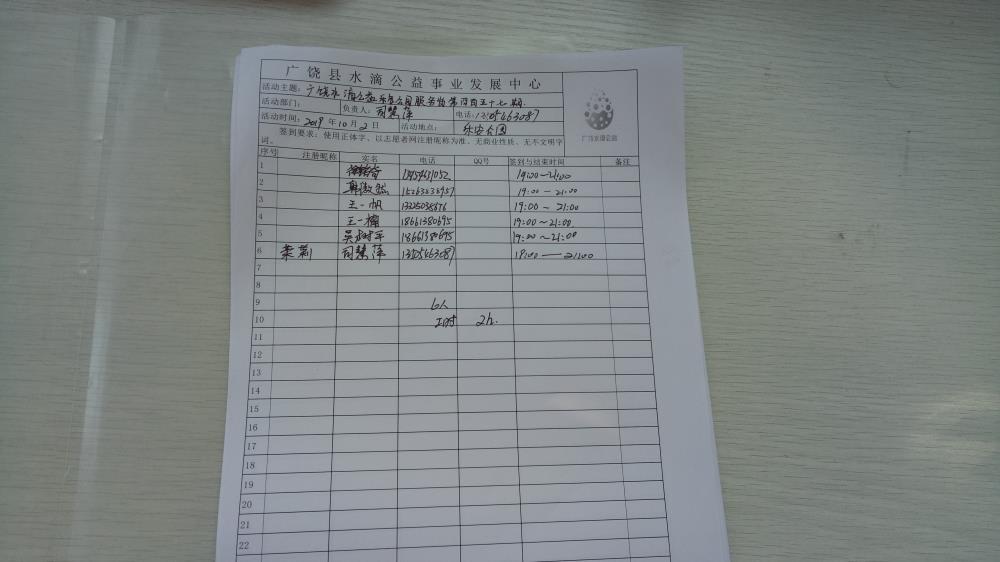 广饶县水滴公益事业发展中心
活动主题：广饶水滴公益乐安公园服务岗第四百五十七期.
活动部门： 负责人：司慧萍 电话：13505463087
活动时间：2019年10月2日 活动地点： 乐安公园
广饶水滴公益
签到要求：使用正体字、以志愿者网注册昵称为准、无商业性质、无不文明字
词。
序号 注册昵称 实名 电话 QQ号 签到与结束时间 备注
1 19:00～21:00
2 19:00～21:00
3 王一帆 19:00～21:00
4 王一楠 18661380695 19:00～21:00
5 吴树平 18661380695 19:00～21:00
6 茉莉 司慧萍 13505463087 19:00—21:00
7
8
9 6人
10 工时 2h.
11
12
13
14
15
16
17
18
19
20
21
22